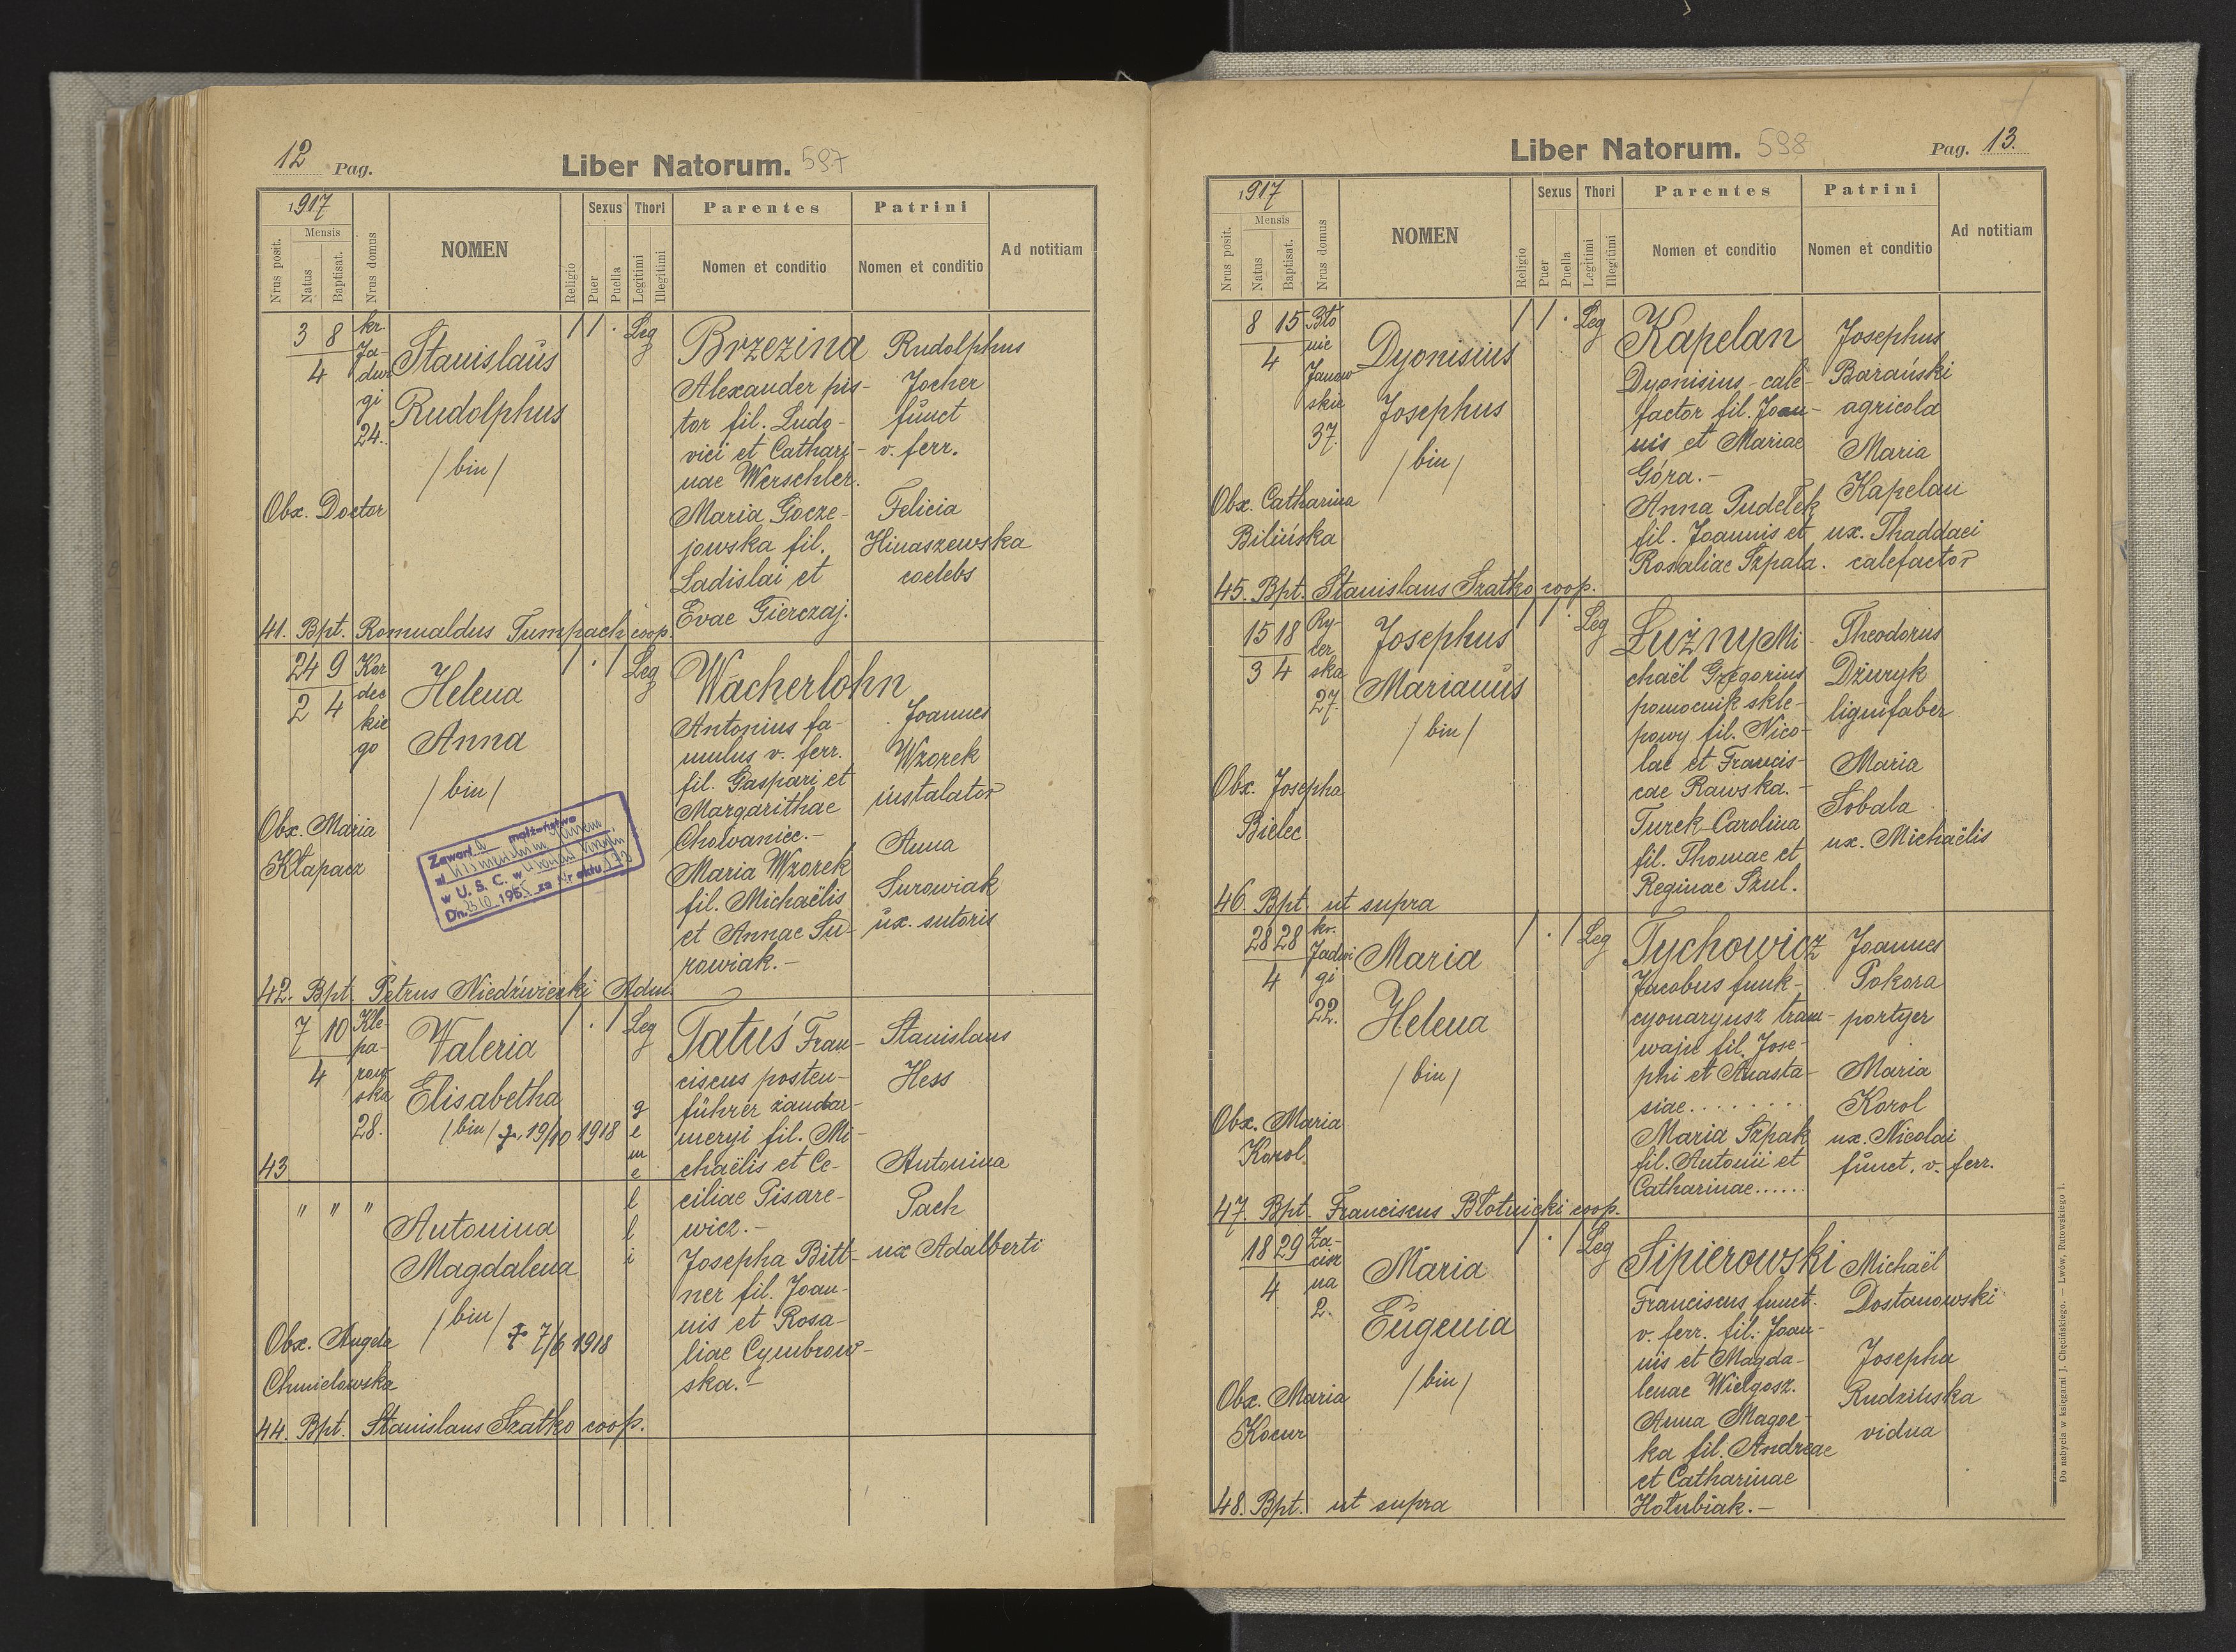 12 Pag.
Liber Natorum. 597
1917
Nrus posit.
Mensis
Natus
Baptisat.
Nrus domus
NOMEN
Religio
Sexus
Puer
Puella
Thori
Legitimi
Illegitimi
Parentes
Nomen et conditio
Patrini
Nomen et conditio
Ad notitiam
3 8
4
kr.
Ja-
dwi
gi
24.
Stanislaus
Rudolphus
/ bin /
1 1 . Leg
Brzezina
Alexander pis-
tor fil. Ludo-
vici et Cathari-
nae Werschler.
Maria Gocze-
jowska fil.
Ladislai et
Evae Gierczaj.
Rudolphus
Jocher
funct
v. ferr.
Felicia
Hinaszewska
coelebs
Obx. Doctor
41. Bpt. Romualdus Tumpach coop.
24 9
2 4
Kor
dec
kie
go
Helena
Anna
/ bin /
1 . 1 Leg
Wacherlohn
Antonius fa-
mulus v. ferr.
fil. Gaspari et
Margarithae
Cholvaniec.-
Maria Wzorek
fil. Michaëlis
et Annae Su-
rowiak.-
Joannes
Wzorek
instalator
Anna
Surowiak
ux. sutoris
Obx. Maria
Kłapacz
Zawarł a małżeństwo
z
w U. S. C. w
Dn. 195 za Nr aktu
42. Bpt. Petrus Niedźwiecki Adm.
7 10
4
Kle-
pa-
row
ska
28.
Valeria
Elisabetha
/ bin / 19/10 1918
1 . 1 Leg
g
e
m
e
l
l
i
Tatuś Fran-
ciscus posten-
führer żandar-
meryi fil. Mi-
chaëlis et Ce-
ciliae Pisare-
wicz.-
Josepha Bitt-
ner fil. Joan-
nis et Rosa-
liae Cymbrow-
ska.-
Stanislaus
Hess
Antonina
Pach
ux Adalberti
43
" " "
Antonina
Magdalena
/ bin / 7/6 1918
Obx. Angela
Chmielowska
44. Bpt. Stanislaus Szatko coop.
Liber Natorum. 598
Pag. 13.
1917
Nrus posit.
Mensis
Natus
Baptisat.
Nrus domus
NOMEN
Religio
Sexus
Puer
Puella
Thori
Legitimi
Illegitimi
Parentes
Nomen et conditio
Patrini
Nomen et conditio
Ad notitiam
8 15
4
Bło
nie
Janow
skie
37.
Dyonisius
Josephus
/ bin /
1 1 . Leg
Kapelan
Dyonisius - cale-
factor fil. Joan-
nis et Mariae
Góra.-
Anna Pudełek
fil. Joannis et
Rosaliae Szpala.
Josephus
Barański
agricola
Maria
Kapelan
ux. Thaddaei
calefactor
Obx. Catharina
Bilińska
45. Bpt. Stanislaus Szatko coop.
15 18
3 4
Ry-
cer
ska
27.
Josephus
Marianus
/ bin /
1 1 . Leg
Luźny Mi-
chaël Gregorius
pomocnik skle-
powy fil. Nico-
lae et Francis-
cae Rawska.-
Turek Carolina
fil. Thomae et
Reginae Szul.
Theodorus
Dżuryk
lignifaber
Maria
Sobala
ux. Michaëlis
Obx. Josepha
Bielec
46. Bpt. ut supra
28 28
4
kr.
Jadwi
gi
22.
Maria
Helena
/ bin /
1 . 1 Leg
Tychowicz
Jacobus funk-
cyonaryusz tram-
waju fil. Jose-
phi et Anasta-
siae........
Maria Szpak
fil. Antonii et
Catharinae......
Joannes
Pokora
portyer
Maria
Korol
ux. Nicolai
funct. v. ferr.
Obx. Maria
Korol
47. Bpt. Franciscus Błotnicki coop.
18 29
4
Za-
cisz
na
2.
Maria
Eugenia
/ bin /
1 . 1 Leg
Sipierowski
Franciscus funct.
v. ferr. fil. Joan-
nis et Magda-
lenae Wielgosz.
Anna Magoc-
ka fil. Andreae
et Catharinae
Hołubiak.-
Michaël
Dostanowski
Josepha
Rudzińska
vidua
Obx. Maria
Kocur
48. Bpt. ut supra
Do nabycia w księgarni J. Chęcińskiego. — Lwów, Rutowskiego 1.